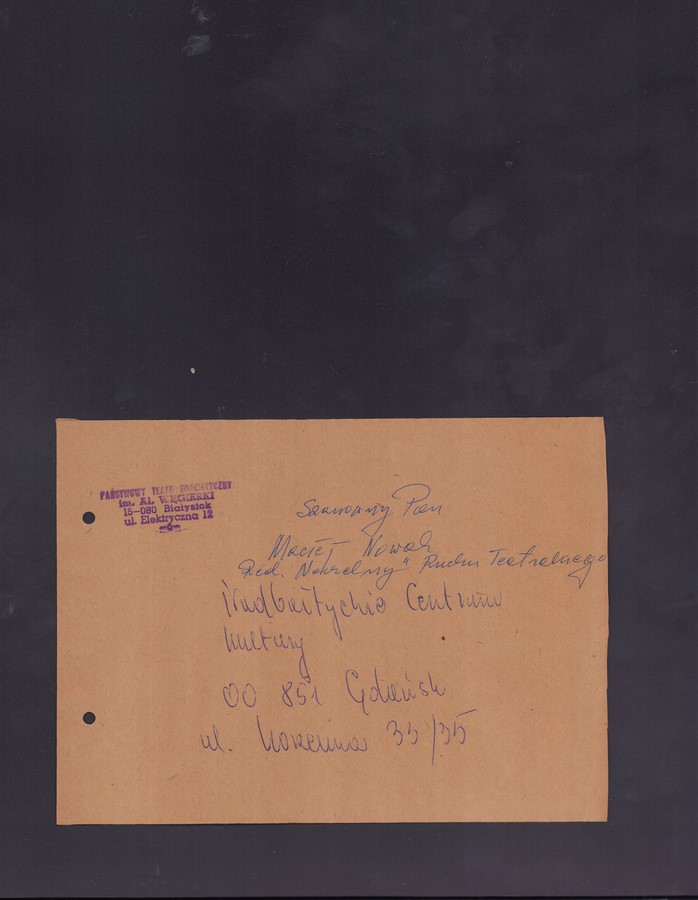 PAŃSTWOWY TEATR DRAMATYCZNY
im. Al. WĘGIERKI
15-080 Białystok
ul. Elektryczna 12
-6-
Szanowny Pan
Maciej Nowak
Red. Naczelny "Ruchu Teatralnego
Nadbałtyckie Centrum
Kultury
00 851 Gdańsk
ul. Korzenna 33/35